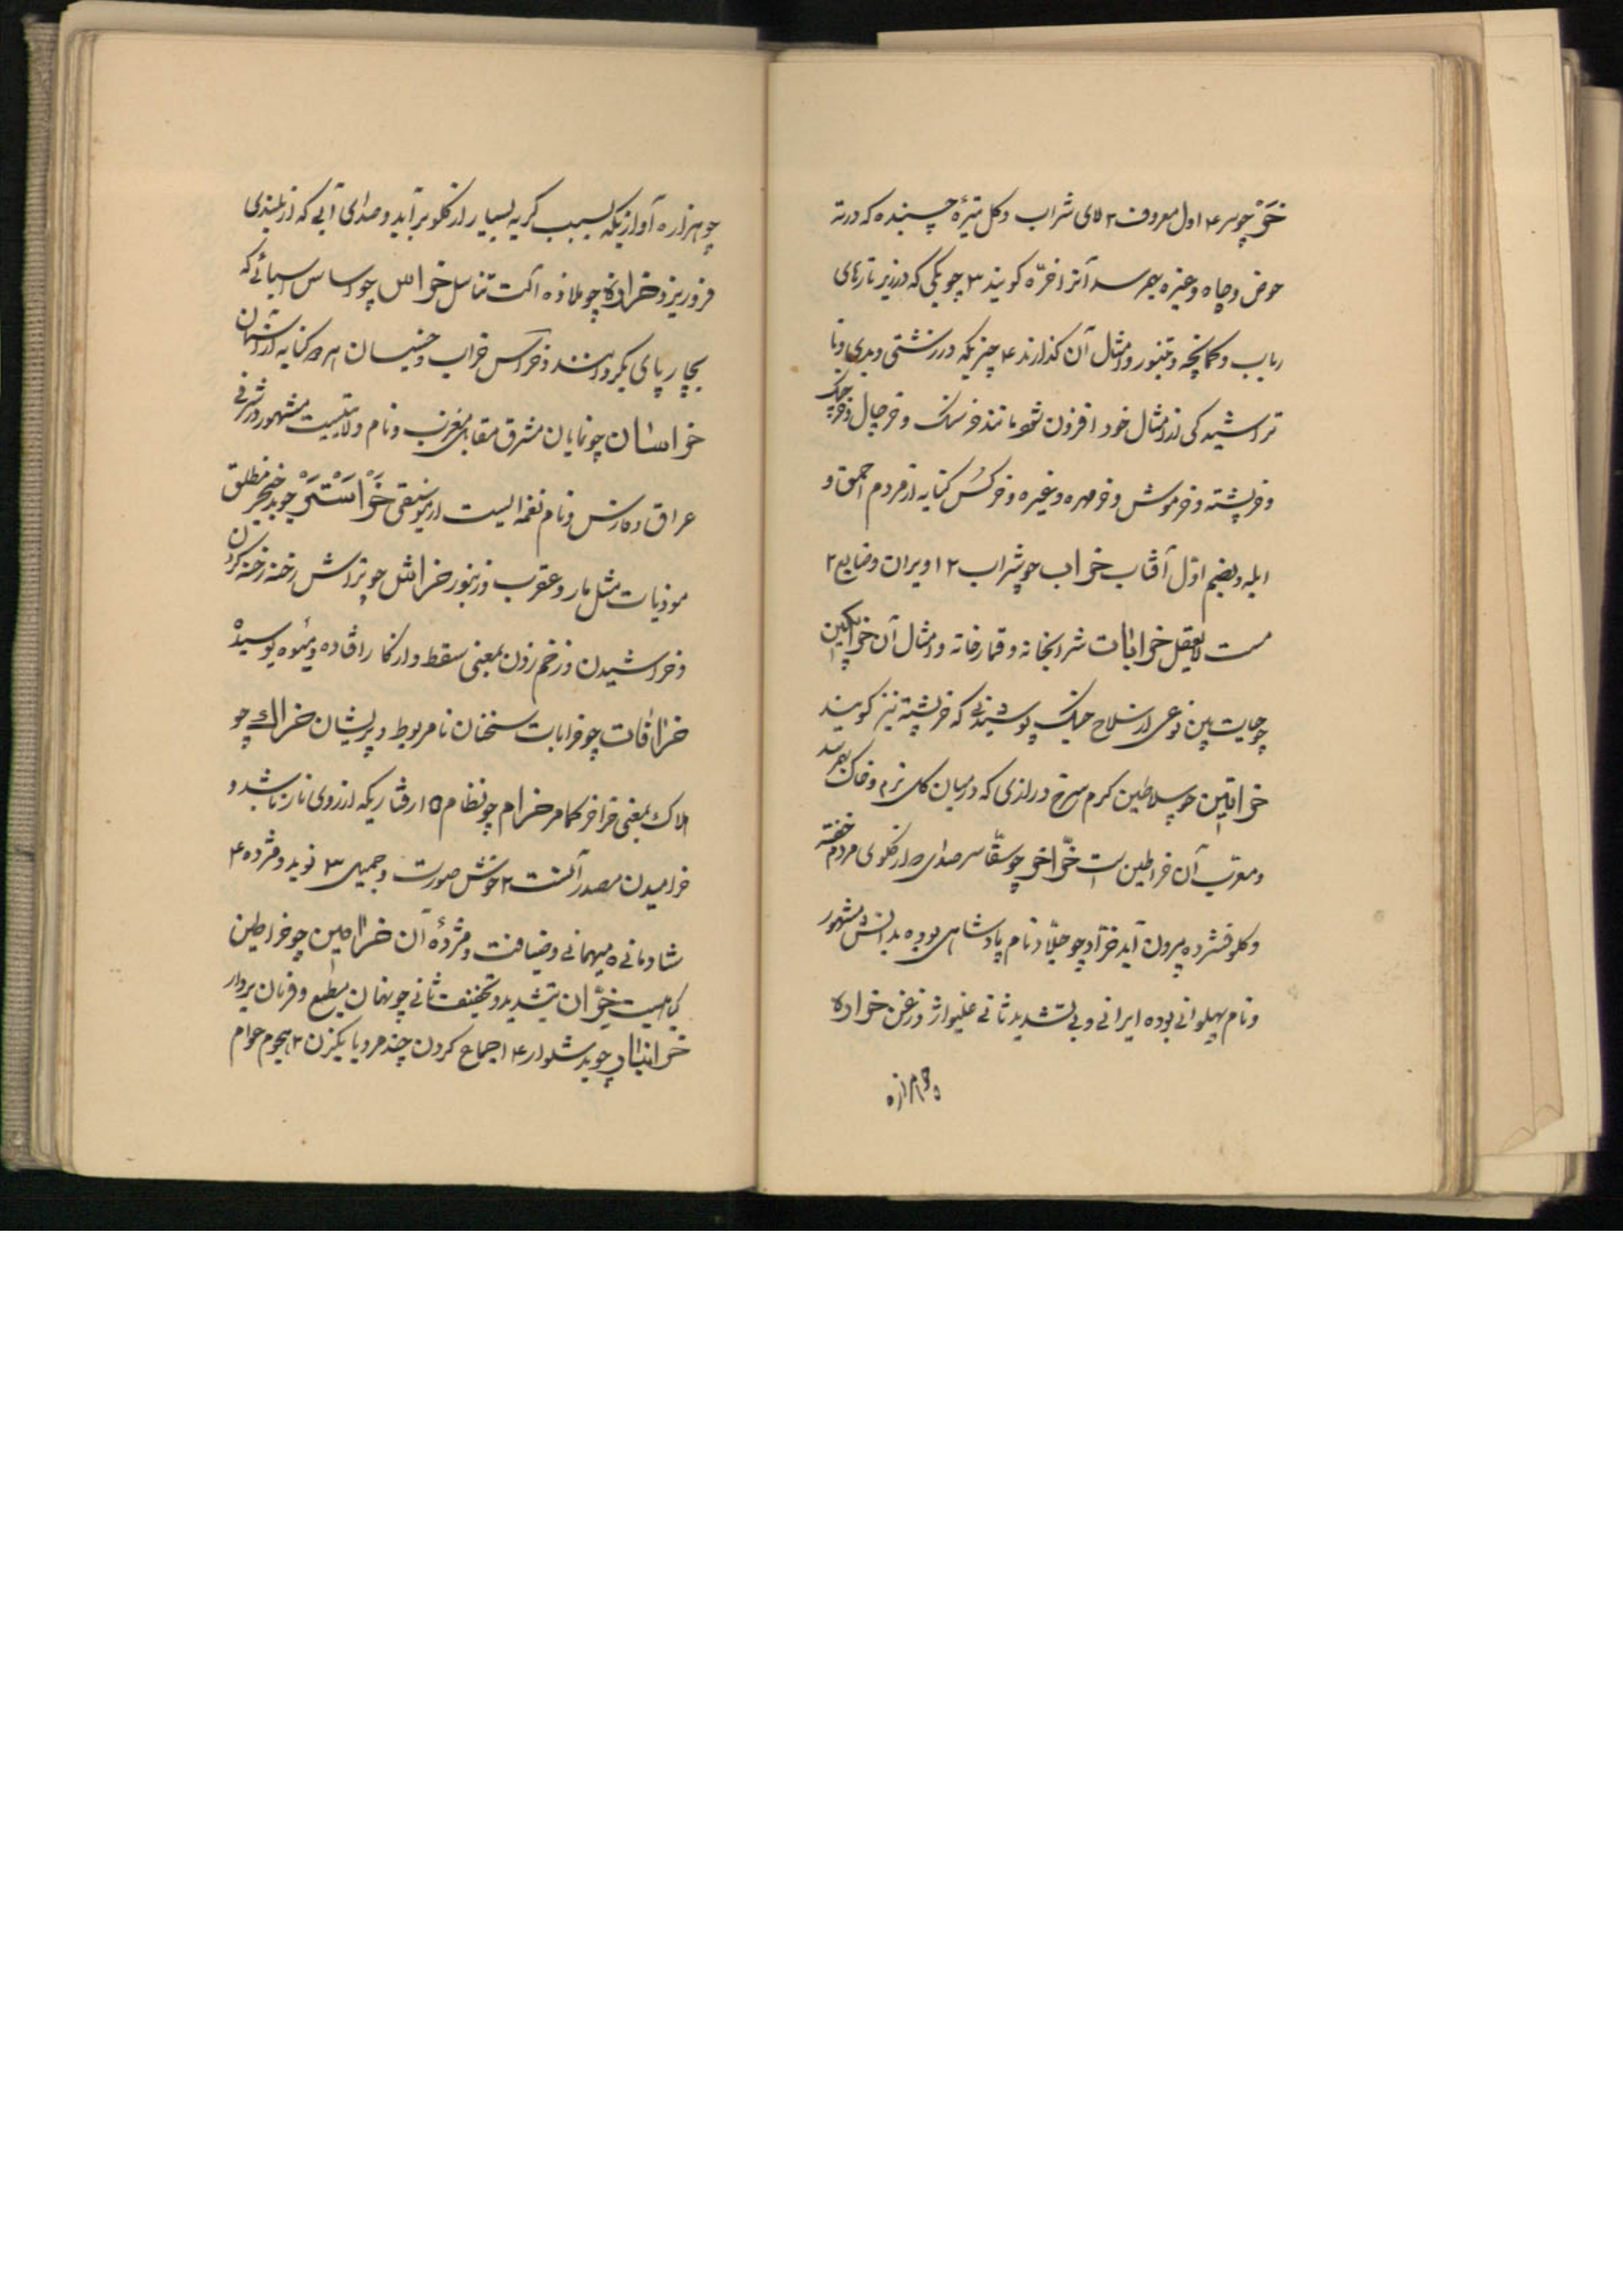 خر چو سر ۴ اول معروف ۲ لای شراب و کل تیرهٔ چسبنده که در ته
حوض و چاه و غیره بهم رسد آنرا خرّه کویند ۳ چوبکی که در زیر تارهای
رباب و کمانچه و تنبور و امثال آن کذارند ۴ چیزیکه در زشتی و بدی و نا
تراشیدکی از امثال خود افزون شود مانند خرسنک و خرچال و خرچنک
و خرپشته و خرموش و خرمهره و غیره و خرکس کنایه از مردم احمق و
ابله و بضم اوّل آفتاب خراب چو شراب ۲ ۱ ویران و ضایع ۲
مست لایعقل خرابات شرابخانه و قمارخانه و امثال آن خراپکین
چو جایت پین نوعی از سلاح جنک پوشیدنی که خرپشته نیز کویند
خراتین چو سلاطین کرم سرخ درازی که در میان کل نرم و خاک بهم رسد
و معرّب آن خراطین است خرّاخر چو سقّاسر صدای که از کلوی مردم خفته
و کلو فشرده بیرون آید خرّاد چو جلّاد نام پادشاهی بوده بدانش مشهور
و نام پهلوانی بوده ایرانی و بی تشدید ثانی غلیواژ و زغن خراده
چو هزاره آوازیکه بسبب کریه بسیار از کلو برآید و صدای آبی که از بلندی
فرو ریزد خرازه چو ملازه آلت تناسل خراس چو اساس آسیائی که
بچارپای بکردانند و خراس خراب و خسیسان هر دو کنایه از آسمان
خراسان چو نمایان مشرق مقابل مغرب و نام ولایتیست مشهور در شرقی
عراق و فارس و نام نغمه ایست از موسیقی خراستر چو بدخنجر مطلق
موذیات مثل مار و عقرب و زنبور خراش چو تراش رخنه رخنه کردن
و خراشیدن و زخم زدن بمعنی سقط و از کار افتاده و میوه پوسیده
خرافات چو خرابات سخنان نامربوط و پریشان خراک چو
هلاک بمعنی خراخر کما مر خرام چو نظام ۵ ۱ رفتاریکه از روی ناز باشد و
خرامیدن مصدر آنست ۲ خوش صورت و جمیل ۳ نوید و مژده ۴
شادمانی ۵ میهمانی و ضیافت و مژدهٔ آن خرامین چو خراطین
کیاهیست خرّان بتشدید و تخفیف ثانی چو بهمان مطیع و فرمان بردار
خرانبار چو بدشلوار ۴ ۱ اجماع کردن چند مرد با یکزن ۲ هجوم عوام